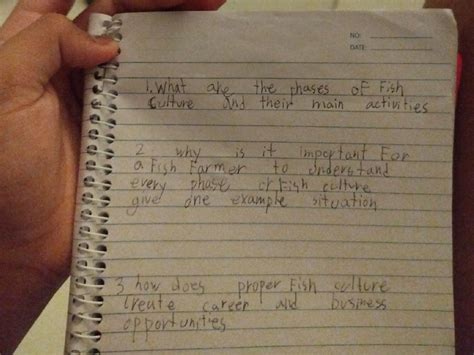 NO:
DATE:
1. What are the phases of Fish
Culture and their main activities
2 why is it important For
a Fish Farmer to understand
every phase of Fish culture
give one example situation
3 how does proper Fish culture
create career and business
opportunities